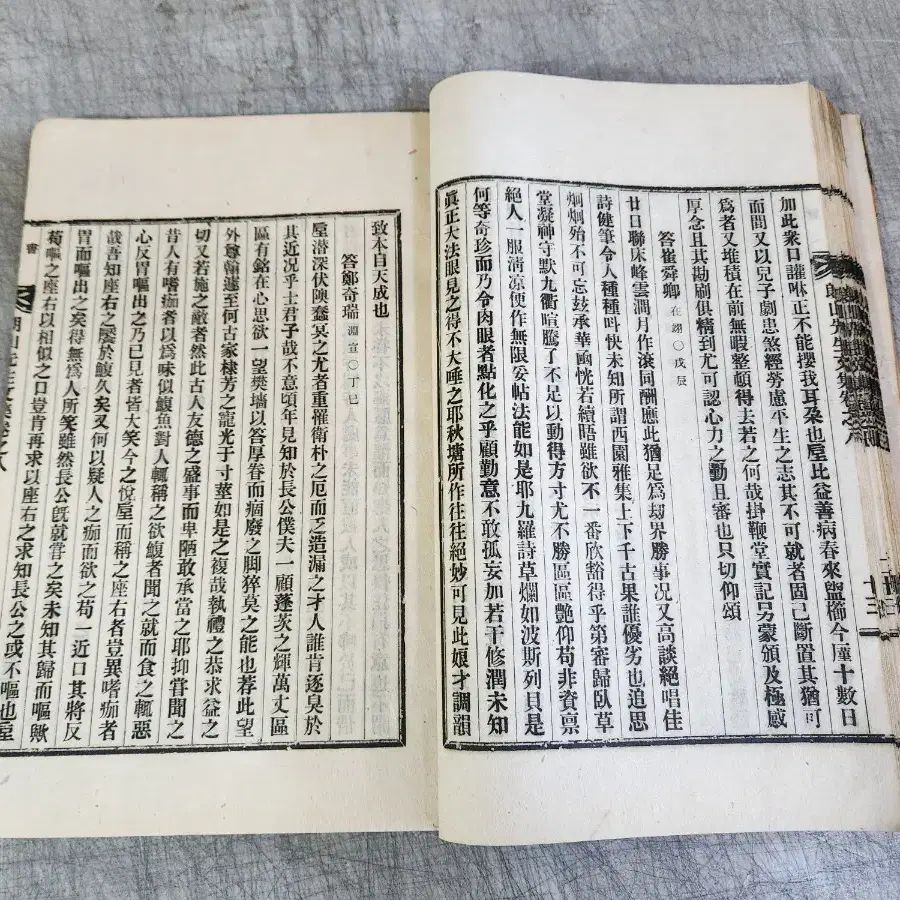 加此衆口讙咻正不能攖我耳朶也垕比益善病春來盥櫛今厪十數日
而間又以兒子劇患煞經勞慮平生之志其不可就者固已斷置其猶可
爲者又堆積在前無暇整頓得去若之何哉掛鞭堂實記另蒙頒及極感
厚念且其勘刷俱精到尤可認心力之勤且審也只切仰頌
答崔舜卿 在翊○戊辰
廿日聯床峰雲澗月作滾同酬應此猶足爲刼界勝事况又高談絕唱佳
詩健筆令人種種呌快未知所謂西園雅集上下千古果誰優劣也追思
烱烱殆不可忘玆承華凾恍若續晤雖欲不一番欣豁得乎第審歸臥草
堂凝神守默九衢暄騰了不足以動得方寸尤不勝區區艶仰苟非資禀
絕人一服淸凉便作無限妥帖法能如是耶九羅詩草爛如波斯列貝是
何等奇珍而乃令肉眼者點化之乎顧勤意不敢孤妄加若干修潤未知
眞正大法眼見之得不大唾之耶秋塘所作往往絕妙可見此娘才調韻
朗山先生文集卷之八
十三
致本自天成也
答鄭奇瑞 淵宣○丁巳
垕潛深伏隩蠢冥之尤者重罹衛朴之厄而乏造漏之才人誰肯逐臭於
其近况乎士君子哉不意頃年見知於長公僕夫一顧蓬茨之輝萬丈區
區有銘在心思欲一望樊墻以答厚眷而痼廢之脚猝莫之能也荐此望
外尊翰遽至何古家棣芳之寵光于寸莖如是之複哉執禮之恭求益之
切又若施之敵者然此古人友德之盛事而卑陋敢承當之耶抑嘗聞之
昔人有嗜痂者以爲味似鰒魚對人輒稱之欲鰒者聞之就而食之輒惡
心反胃嘔出之乃已見者皆大笑今之悅垕而稱之座右者豈異嗜痂者
哉吾知座右之饜於鰒久矣又何以疑人之痂而欲之苟一近口其將反
胃而嘔出之矣得無爲人所笑雖然長公旣就甞之矣未知其歸而嘔歟
苟嘔之座右以相似之口豈肯再求以座右之求知長公之或不嘔也垕
書
朗山先生文集卷之八